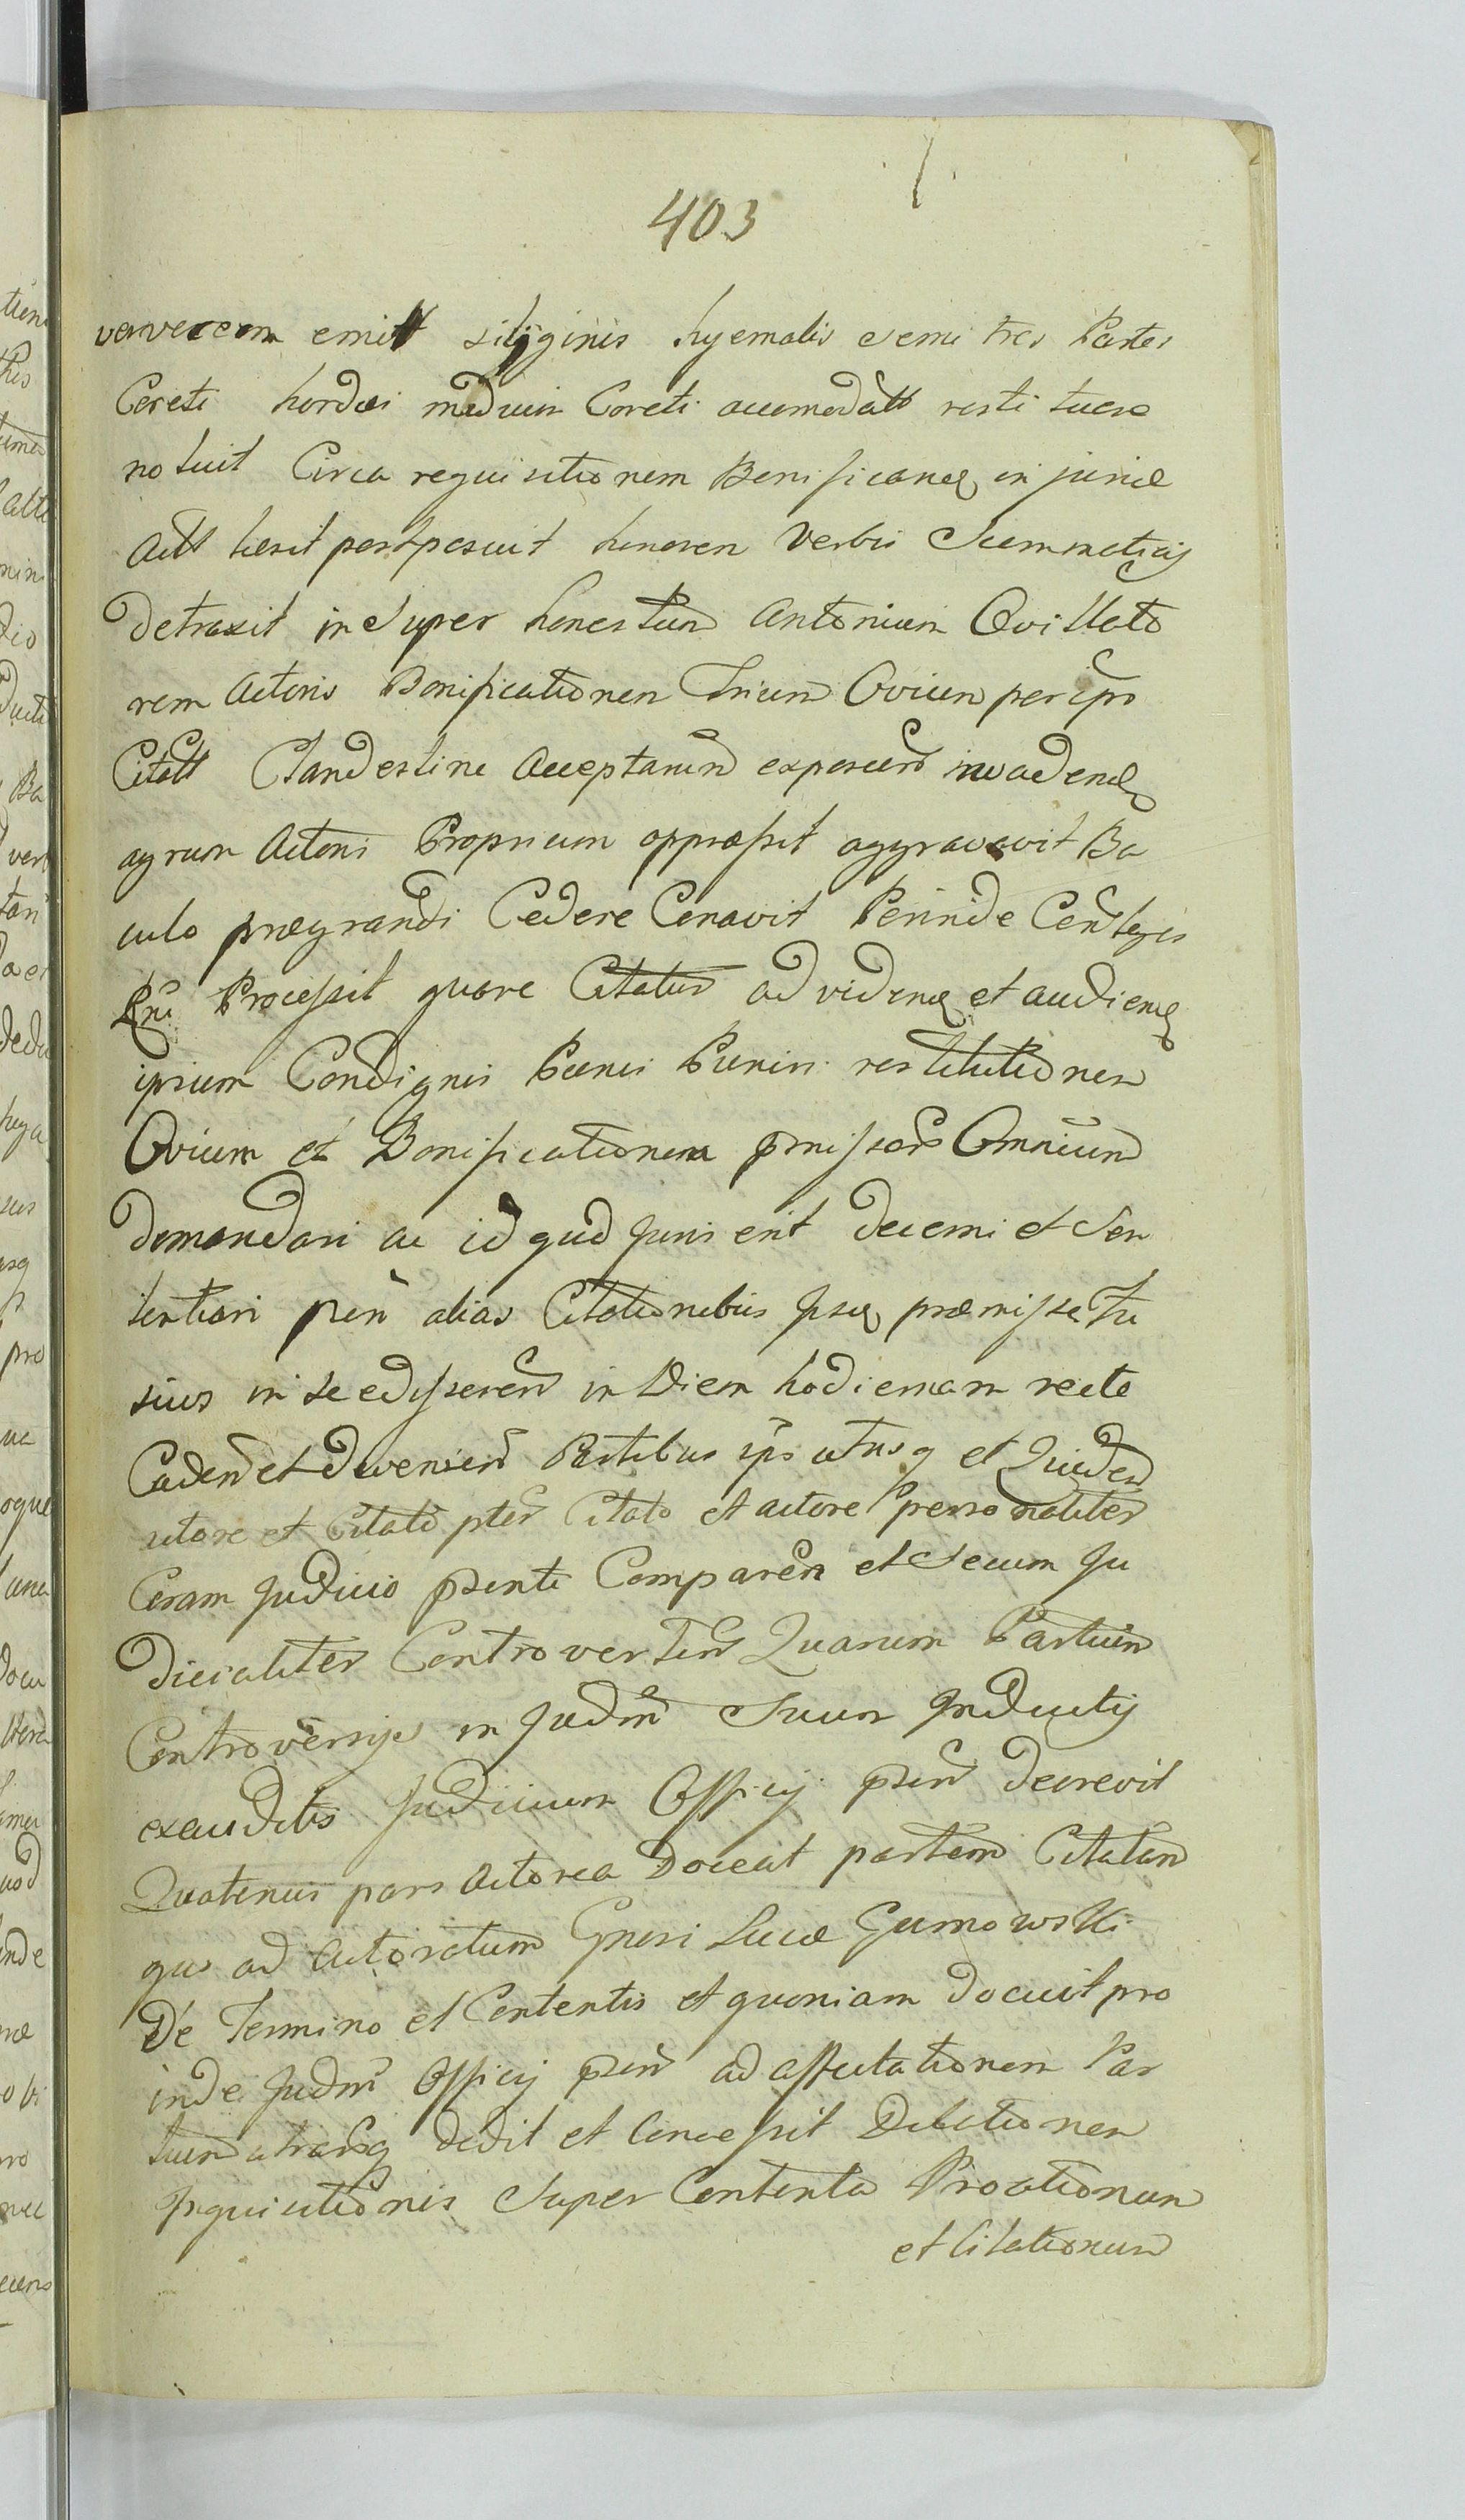 403
ververem emitt siliginis hyemalis semi tres Partes
Cereti hordei medium Coreti accomodatt resti tuere
noluit Circa requisitionem Bonificandę in juriæ
Actt lesit postposuit honoren Verbis Scommaticis
Detraxit in Super honestum Antonium Ovillato
rem Actoris Bonificationen Trium Ovium per ipso
Citatt Clandestine Acceptarum exposcen invadendę
agrum Actoris Proprium oppressit aggravavit Ba
culo prægrandi Cedere Conavit Perinde Contra Leges
Rni Processit quare Citatus ad videnę et audiendę
ipsum Condignis Pænis Puniri restitutionem
Ovium et Bonificationem pmissor Omnium
Demandari ac id quod Juris erit Decerni et Sen
tentiari prout alias Citationibus Ipsa præmissa fu
sius in se edisseren in Diem hodiernam recte
Caden et Devenien Partibus ips utrusq et Quidem
actore et Citato pter Citato et actore Personaliter
Coram Judicio psenti Comparen et Secum Ju
Dicialiter Controverten Quarum Partium
Controversijs in Judm Suum Inductis
exauditis Judicium Officij psens Decrevit
Quatenus pars Actorea Doceat partem Citatam
quo ad Actoratum Gnosi Lucæ Gumowski
De Termino et Contentis et quoniam Docuit pro
inde Judm Officij psens ad affectationem Par
tium utrarusq dedit et Concessit Dilationem
Inquisitionis Super Contenta Proationum
et Citationum